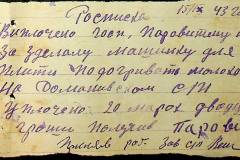 Росписка 15/IX 43 г
Виплочено госп. Подовитому
За зделану машинку для
плити Подогривать молоко
На Романивском с/п
Уплочено 20 марок двад
грошы Получив Паров
Приняв раб. Зав с/п